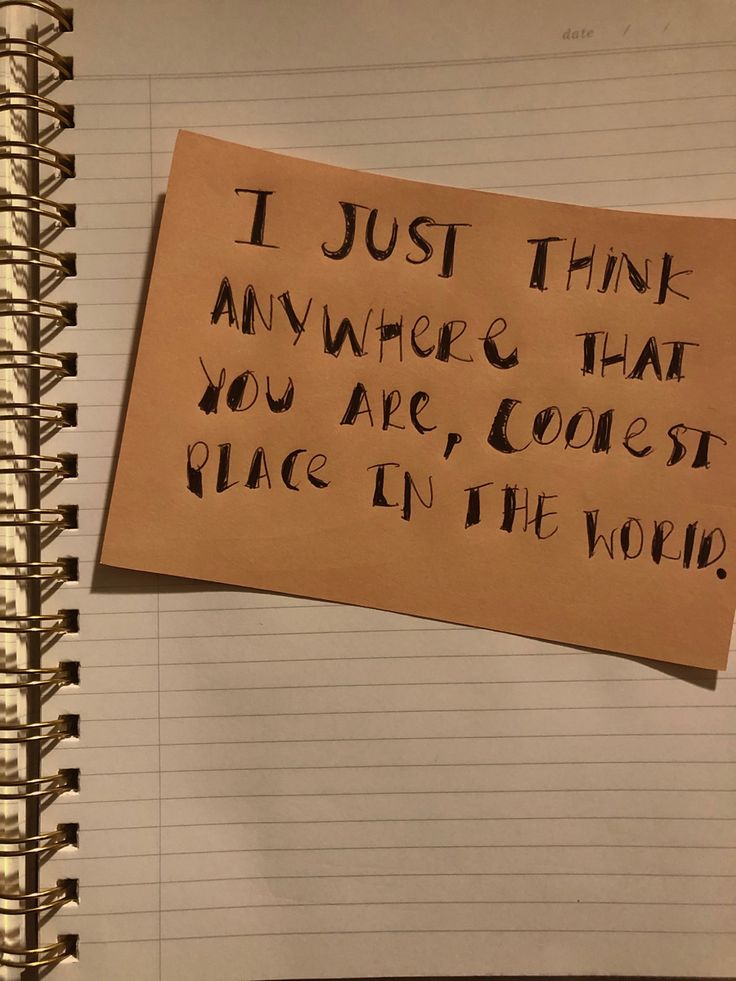 date / /
I JUST THINK
ANYWHERE THAT
YOU ARE, COOlEST
PLACE IN THE WORlD.